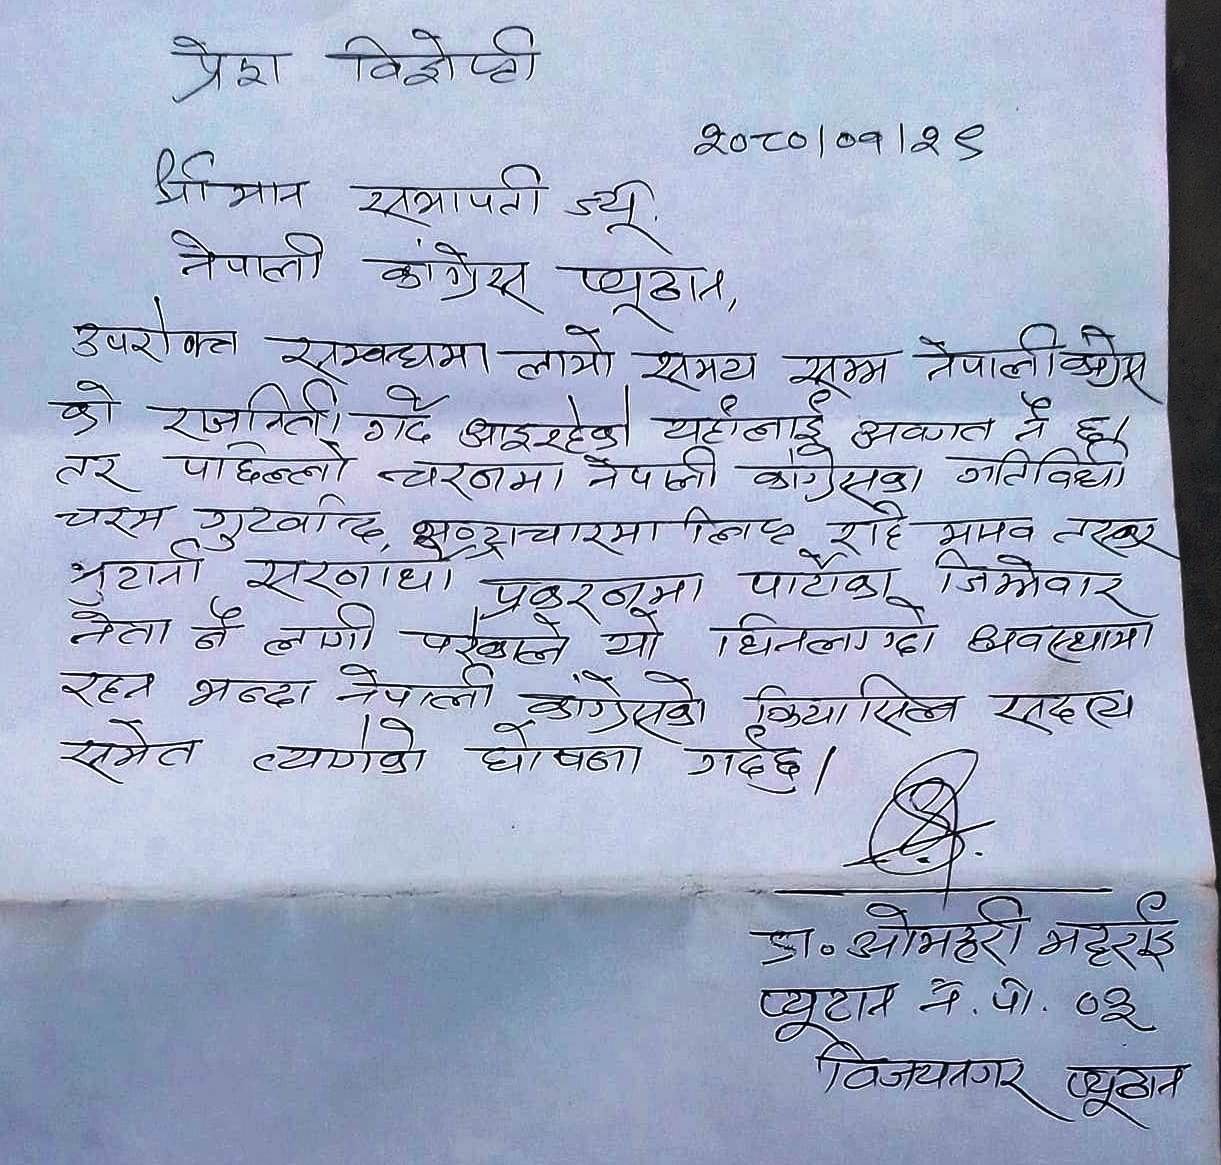 प्रेश विज्ञेप्ती
२०८०।०१।२९
श्रीमान सभापती ज्यू.
नेपाली कांग्रेस प्यूठान,
उपरोक्त सम्वन्धमा लामो समय सम्म नेपाली कांग्रेस
को राजनिती गर्दै आइरहेको यहाँलाई अवगत नै छ।
तर पछिल्लो चरणमा नेपाली कांग्रेसका गतिविधी
चरम गुटवन्दि, भ्रष्ट्राचारमा लिप्त मानव तस्कर
भुटानी सरणार्थी प्रकरणमा पार्टीका जिम्मेवार
नेता नै लागी परेकाले यो घिनलाग्दो अवस्थामा
रहन भन्दा नेपाली कांग्रेसको कियासिल सदस्य
समेत त्यागेको घोषना गर्दछु।
डा. ओमहरी भट्टराई
प्यूठान न. पा. ०३
विजयनगर प्यूठान